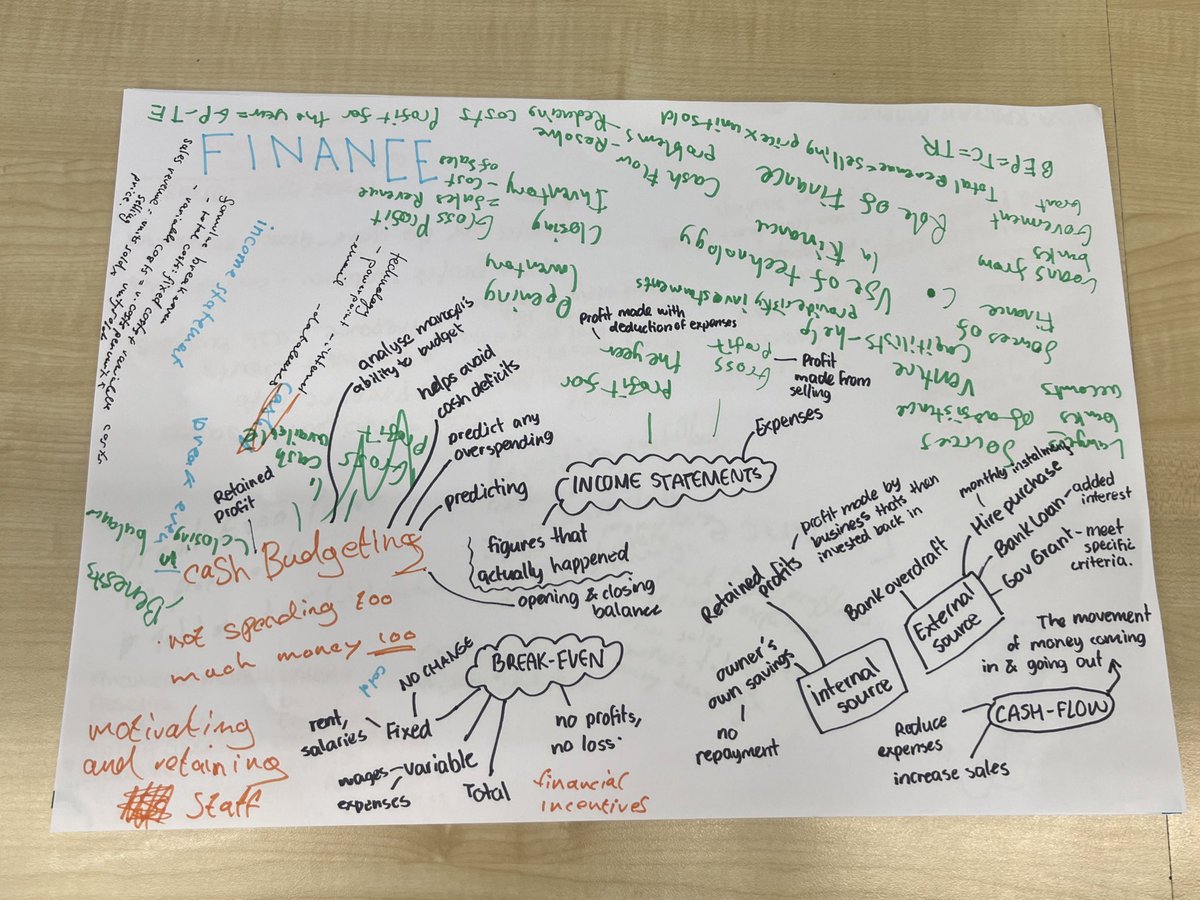 FINANCE
BEP=TC=TR
Total Revenue=selling price x unit sold
Profit for the year=GP-TE
Role of Finance
Cash Flow
problems - Resolve
- Reducing costs
Goverment
Grant
Loans from
banks
Sources of
Finance
Use of technology
in Finance
Venture
Capitilists - help
provide risky investments
Sources
of assistance
banks
accounts
Closing
Inventory
Opening
Inventory
Gross Profit
=Sales Revenue
- Cost
of Sales
Profit for
the year
Gross
Profit
income statement
break even
technology
powerpoint
email
- internet
analyse manager's
ability to budget
helps avoid
cash deficits
predict any
overspending
predicting
Retained
profit
Cash
available
Gross
Profit
closing balance
Benefits
cash Budgeting
opening & closing
balance
figures that
actually happened
INCOME STATEMENTS
Expenses
profit made with
deduction of expenses
profit
made from
selling
· not spending too
much money too
motivating
and retaining
Staff
BREAK-EVEN
NO CHANGE
Fixed
rent,
salaries
variable
wages
expenses
Total
no profits,
no loss.
financial
incentives
Internal
source
Retained
profits
profit made by
business thats then
invested back in
owner's
own savings
no
repayment
External
source
Bank overdraft
Hire purchase
monthly instalment
Bank loan - added
interest
Gov Grant - meet
specific
criteria.
CASH-FLOW
The movement
of money coming
in & going out
Reduce
expenses
increase sales